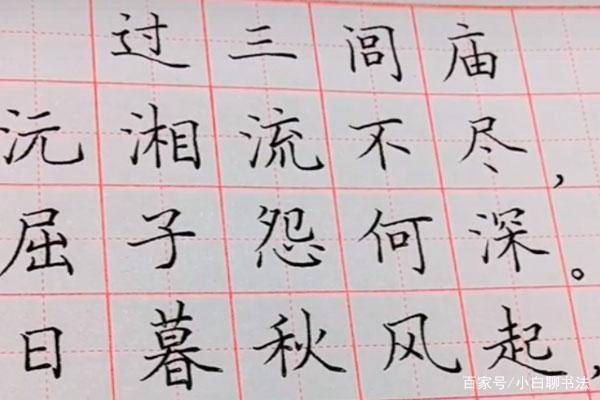 过三闾庙
沅湘流不尽，
屈子怨何深。
日暮秋风起，
百家号/小白聊书法